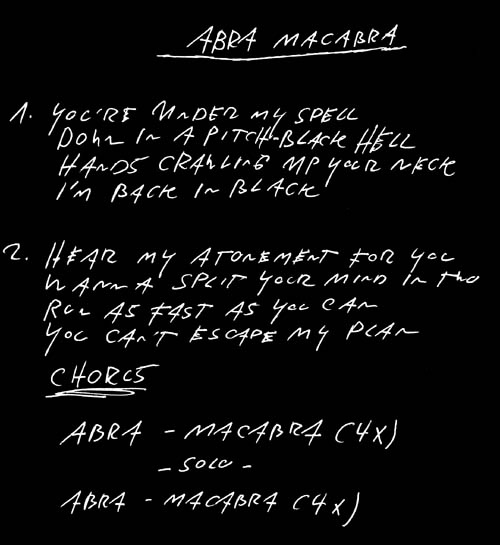 ABRA MACABRA
1. YOU'RE UNDER MY SPELL
DOWN IN A PITCH-BLACK HELL
HANDS CRAWLING UP YOUR NECK
I'M BACK IN BLACK
2. HEAR MY ATONEMENT FOR YOU
WANNA SPLIT YOUR MIND IN TWO
RUN AS FAST AS YOU CAN
YOU CAN'T ESCAPE MY PLAN
CHORUS
ABRA - MACABRA (4X)
- SOLO -
ABRA - MACABRA (4X)